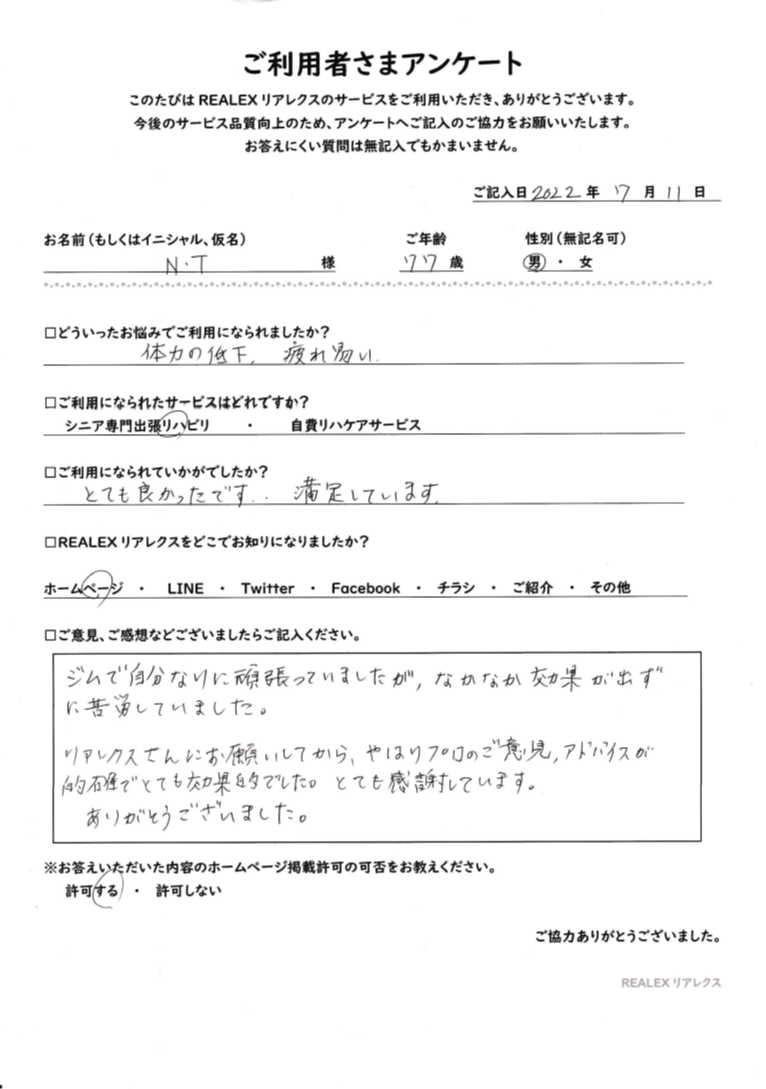 ご利用者さまアンケート
このたびは REALEX リアレクスのサービスをご利用いただき、ありがとうございます。
今後のサービス品質向上のため、アンケートへご記入のご協力をお願いいたします。
お答えにくい質問は無記入でもかまいません。
ご記入日 2022 年 7 月 11 日
お名前（もしくはイニシャル、仮名） ご年齢 性別（無記名可）
N.T 様 77 歳 男 ・ 女
□どういったお悩みでご利用になられましたか？
体力の低下、疲れ易い.
□ご利用になられたサービスはどれですか？
シニア専門出張リハビリ ・ 自費リハケアサービス
□ご利用になられていかがでしたか？
とても良かったです.. 満足しています.
□REALEX リアレクスをどこでお知りになりましたか？
ホームページ ・ LINE ・ Twitter ・ Facebook ・ チラシ ・ ご紹介 ・ その他
□ご意見、ご感想などございましたらご記入ください。
ジムで自分なりに頑張っていましたが, なかなか効果が出ず
に苦労していました。
リアレクスさんにお願いしてから、やはりプロのご意見, アドバイスが
的確でとても効果的でした。とても感謝しています。
ありがとうございました。
※お答えいただいた内容のホームページ掲載許可の可否をお教えください。
許可する ・ 許可しない
ご協力ありがとうございました。
REALEX リアレクス